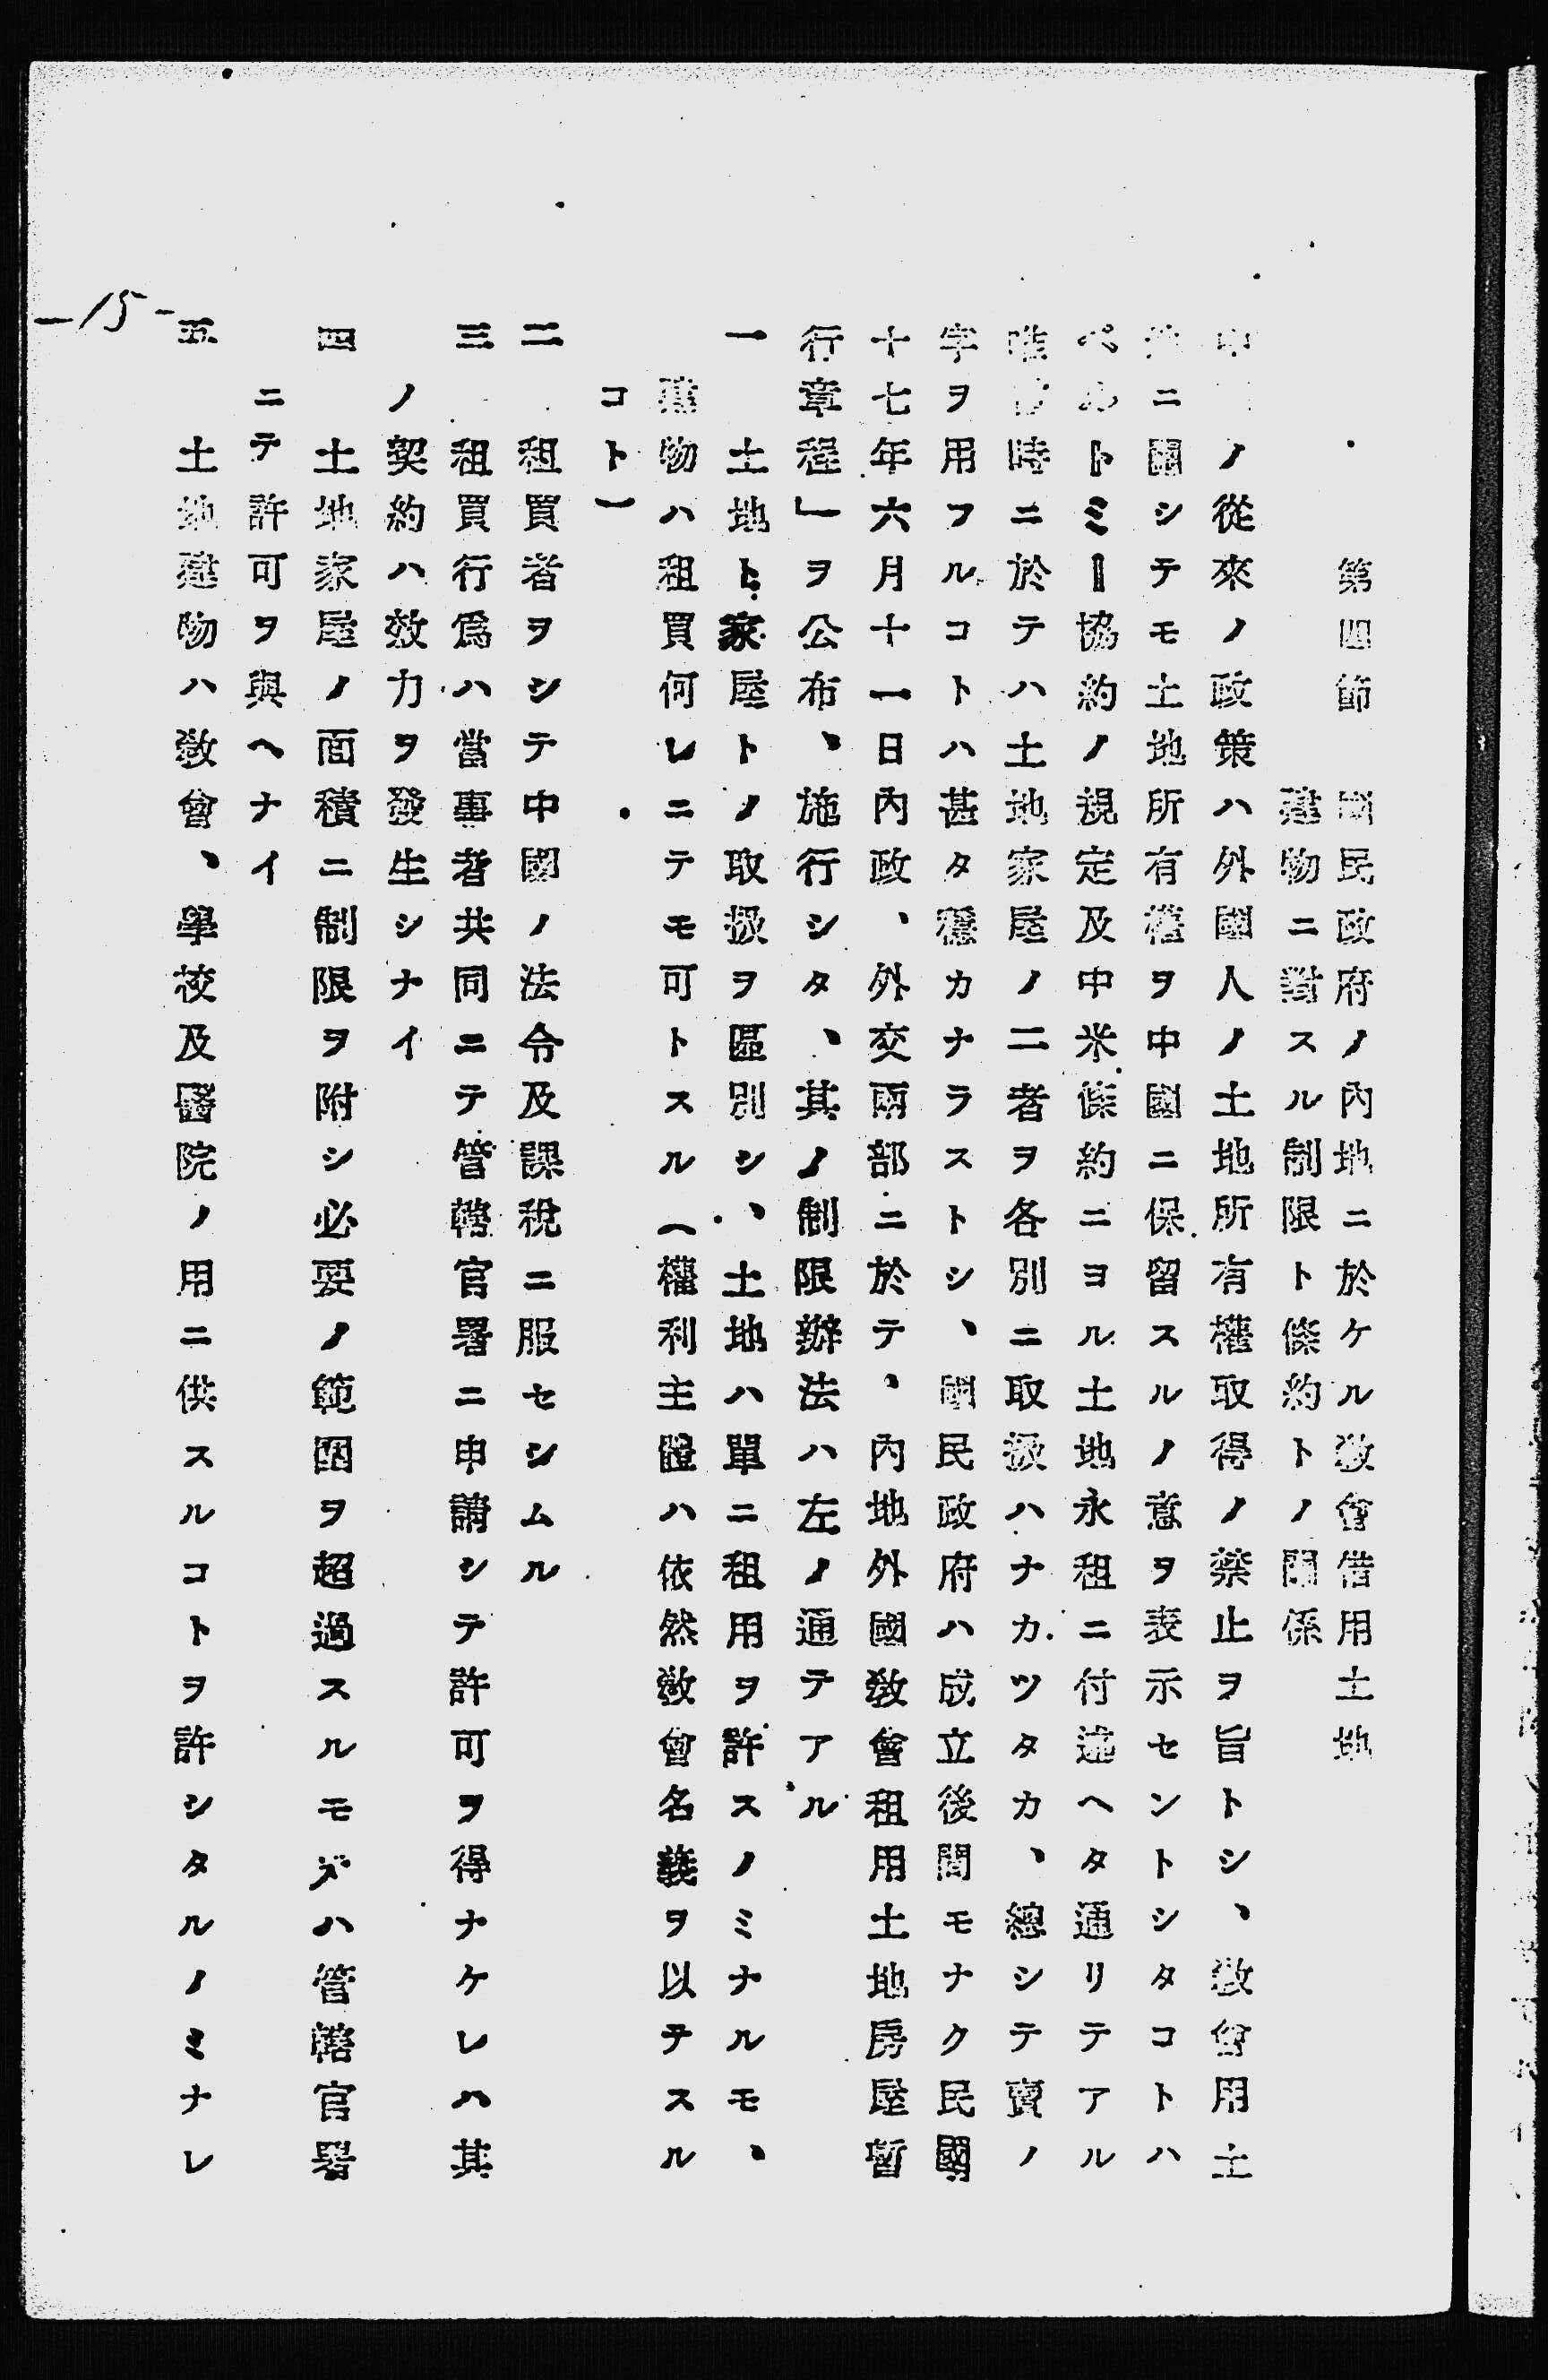 第四節　國民政府ノ內地ニ於ケル敎會借用土地
建物ニ對スル制限ト條約トノ關係
中ノ從來ノ政策ハ外國人ノ土地所有權取得ノ禁止ヲ旨トシ、敎會用土
地ニ關シテモ土地所有權ヲ中國ニ保留スルノ意ヲ表示セントシタコトハ
ベルトミー協約ノ規定及中米條約ニヨル土地永租ニ付述ヘタ通リテアル
時ニ於テハ土地家屋ノ二者ヲ各別ニ取扱ハナカツタカ、總シテ賣ノ
字ヲ用フルコトハ甚タ穩カナラストシ、國民政府ハ成立後間モナク民國
十七年六月十一日內政、外交兩部ニ於テ、內地外國敎會租用土地房屋暫
行章程」ヲ公布、施行シタ、其ノ制限辦法ハ左ノ通テアル
一　土地ト家屋トノ取扱ヲ區別シ、土地ハ單ニ租用ヲ許スノミナルモ、
建物ハ租買何レニテモ可トスル（權利主體ハ依然敎會名義ヲ以テスル
コト）
二　租買者ヲシテ中國ノ法令及課稅ニ服セシムル
三　租買行爲ハ當事者共同ニテ管轄官署ニ申請シテ許可ヲ得ナケレハ其
ノ契約ハ效力ヲ發生シナイ
四　土地家屋ノ面積ニ制限ヲ附シ必要ノ範圍ヲ超過スルモノハ管轄官署
ニテ許可ヲ與ヘナイ
五　土地建物ハ敎會、學校及醫院ノ用ニ供スルコトヲ許シタルノミナレ
—15-